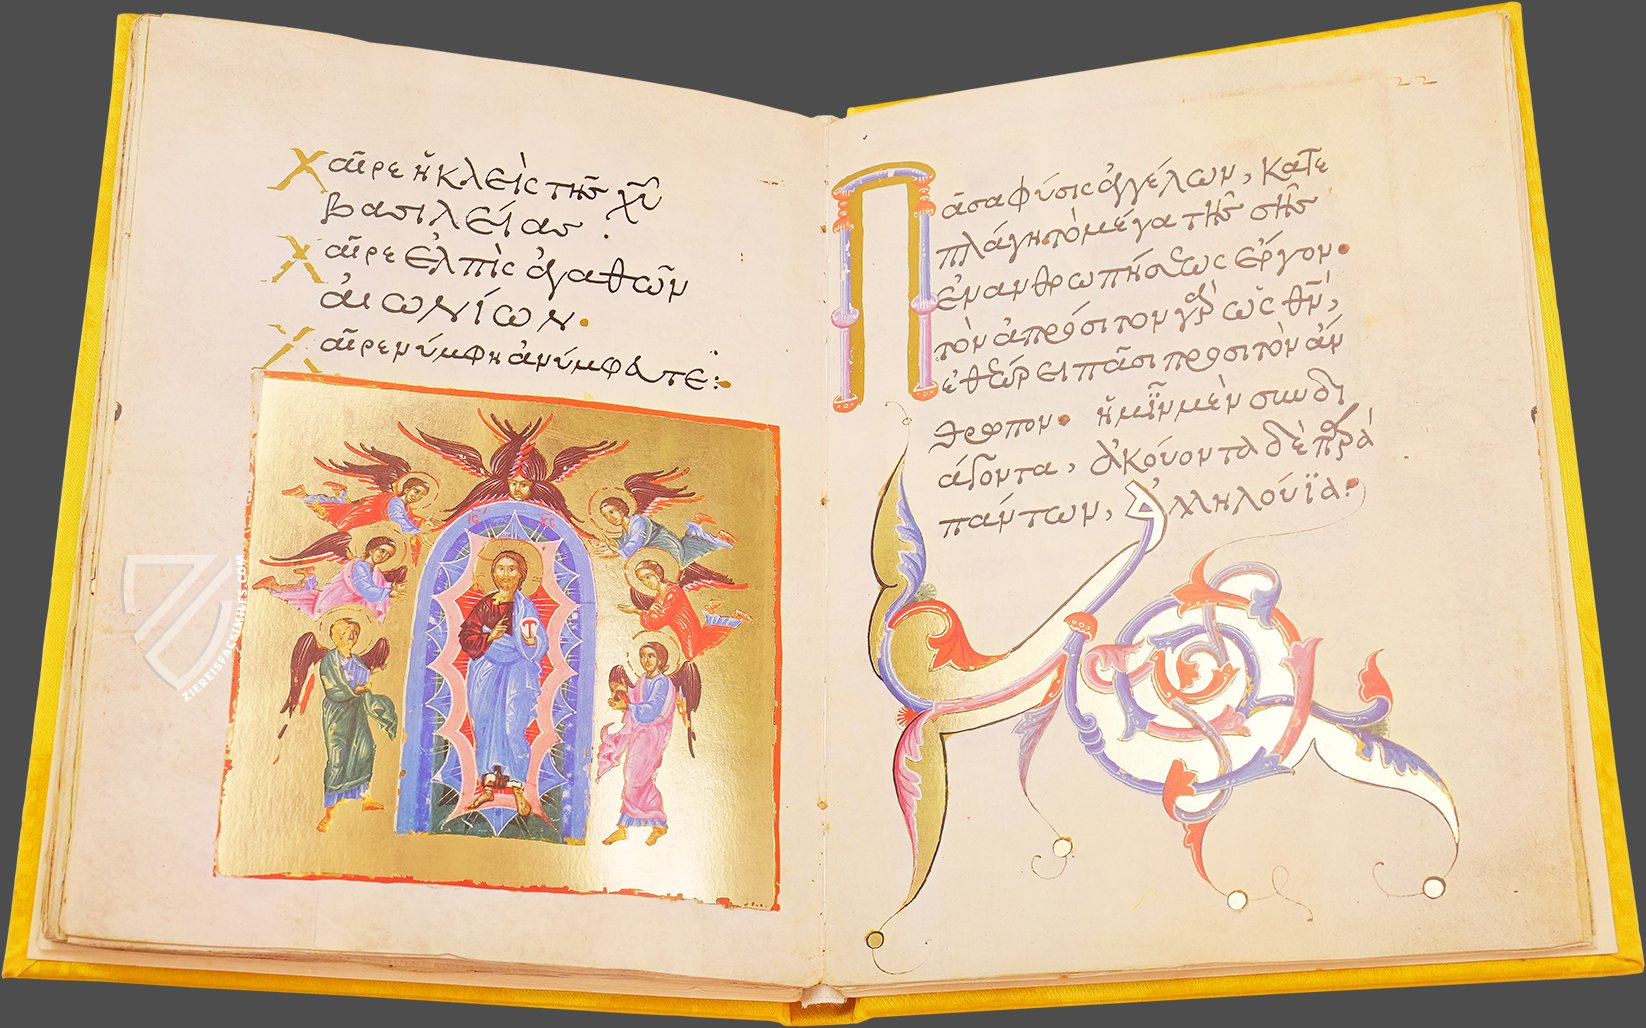 Χαῖρε ἡ κλεὶς τῆς χῦ
βασιλείας·
Χαῖρε ἐλπὶς ἀγαθῶν
αἰωνίων·
Χαῖρε νύμφη ἀνύμφευτε:
ΙΣ ΧΣ
ZIEREISFACSIMILES.COM
22
Πᾶσα φύσις ἀγγέλων, κατε
πλάγη τὸ μέγα τῆς σῆς
ἐνανθρωπήσεως ἔργον·
τὸν ἀπρόσιτον γὰρ ὡς θν,
ἐθεώρει πᾶσι προσιτὸν ἄν
θρωπον· ἡμῖν μὲν συνδι
άγοντα, ἀκούοντα δὲ παρὰ
πάντων, ἀλληλούϊα: